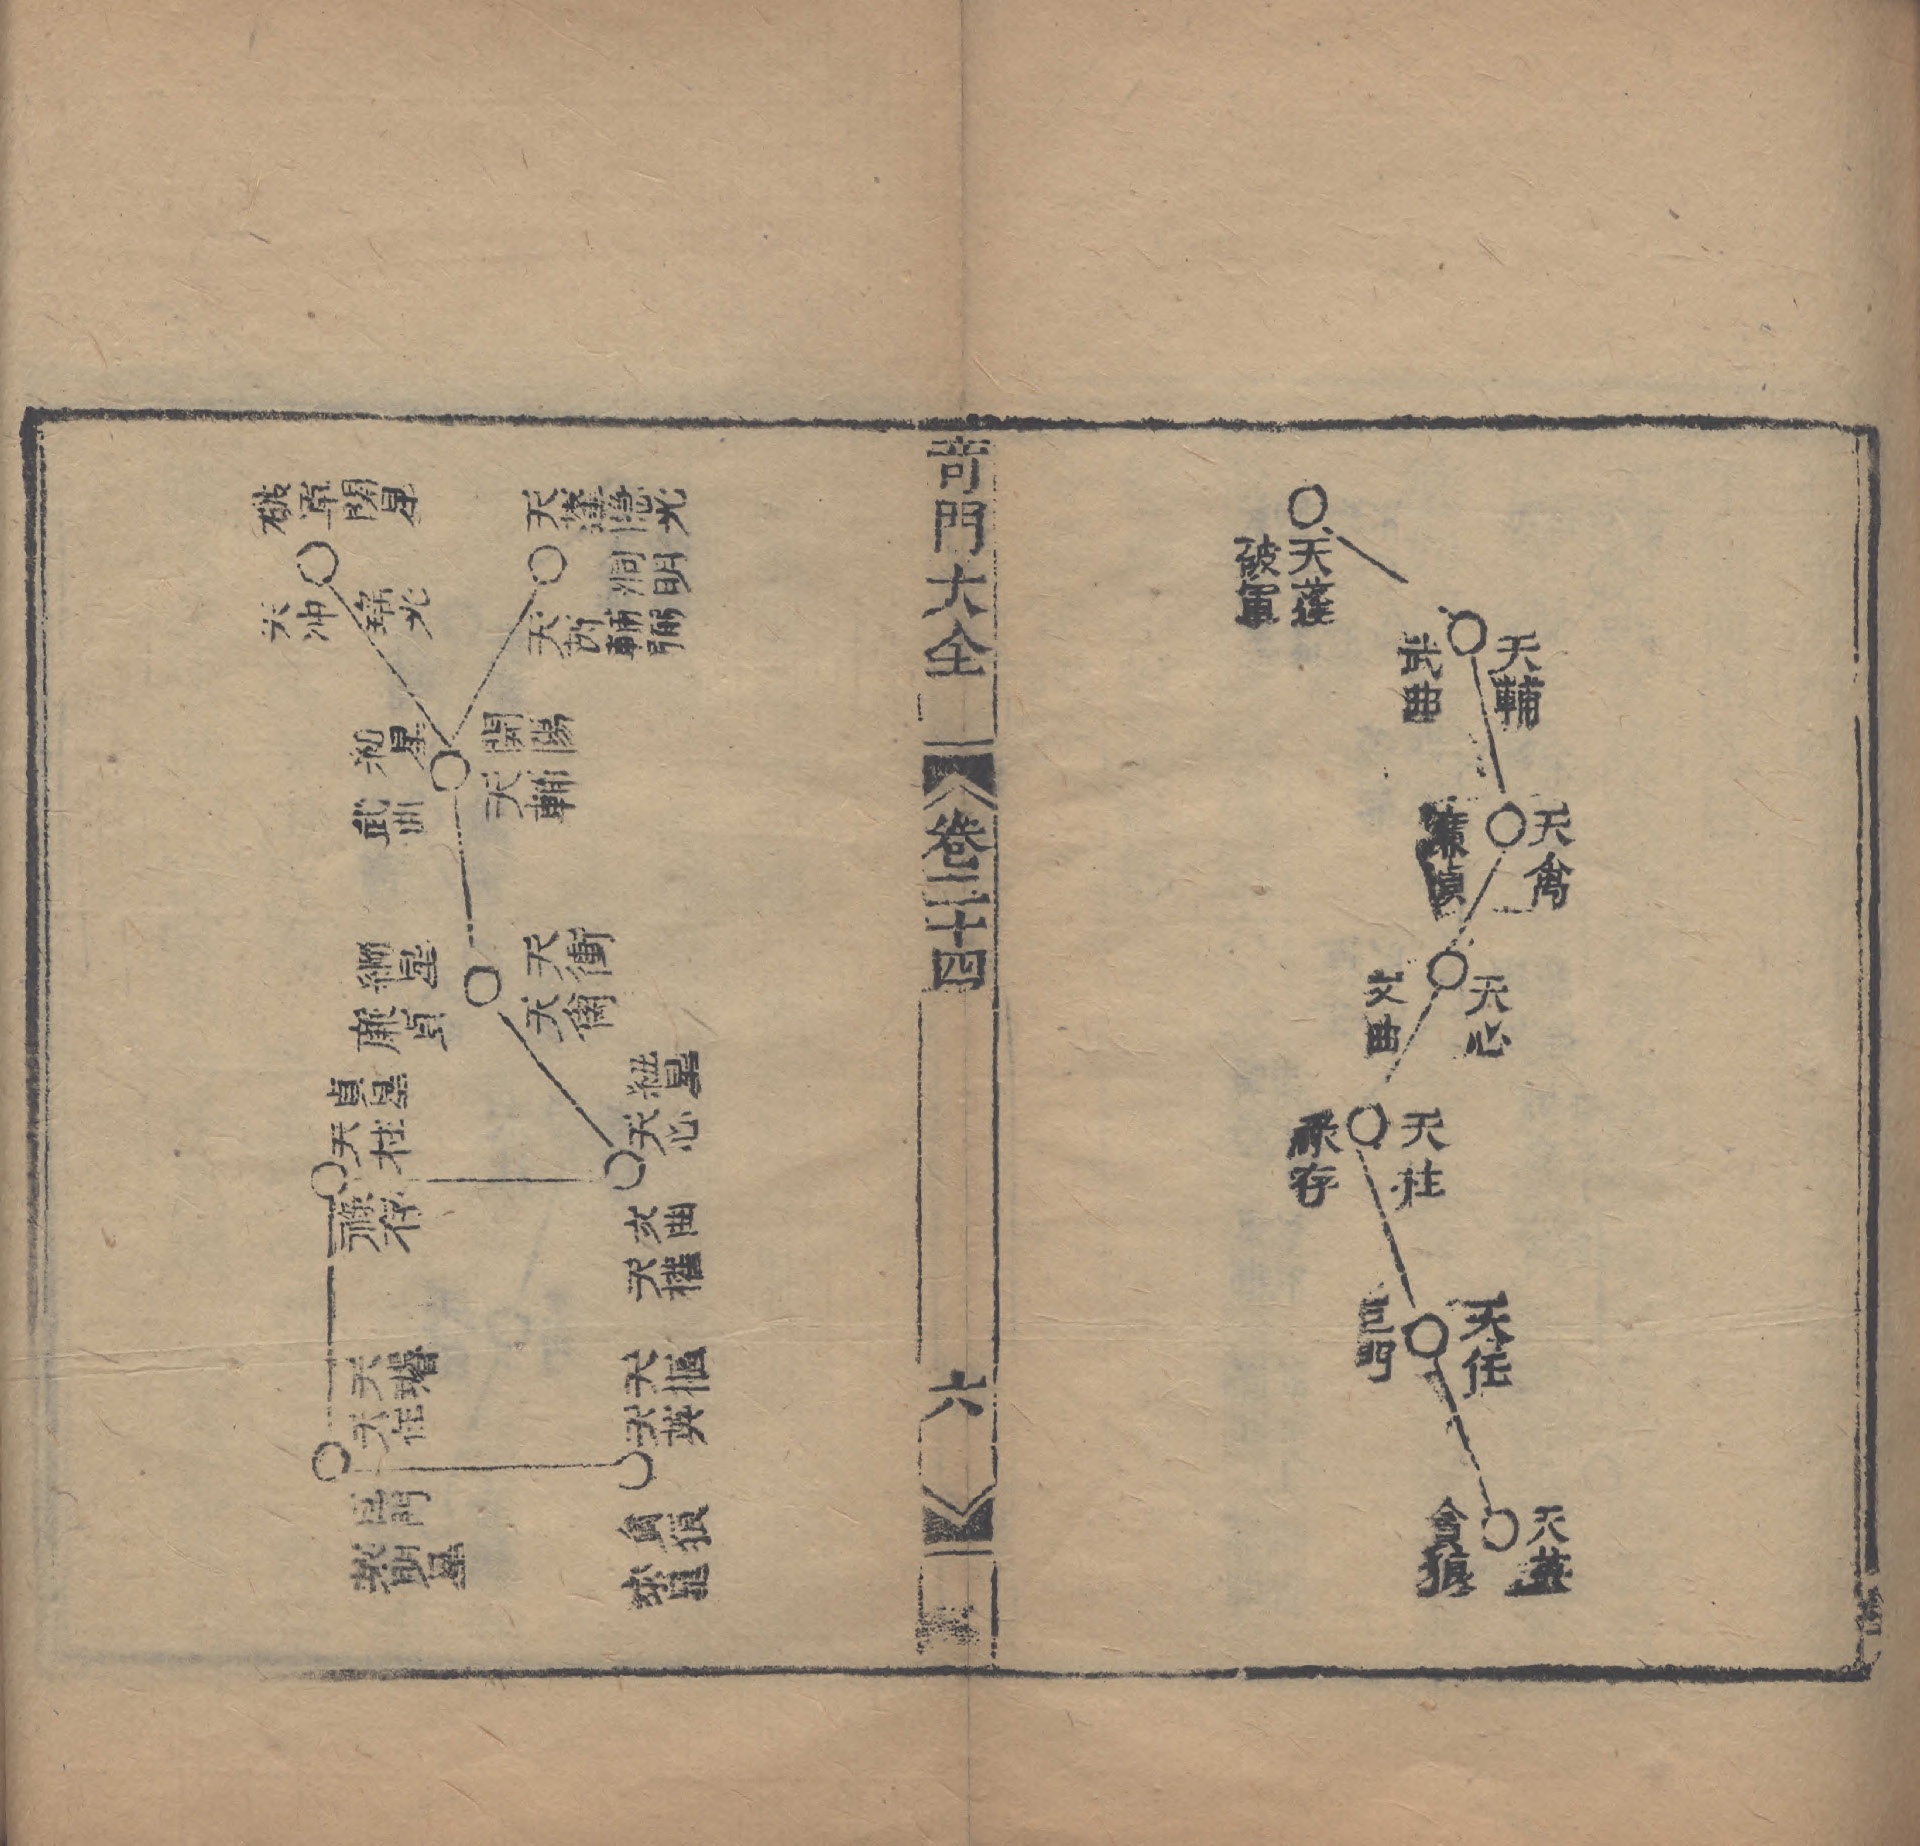 天蓬
破軍
天輔
武曲
天禽
廉貞
天心
文曲
天柱
祿存
天任
巨門
天蓬
貪狼
奇門大全
卷二十四
六
天蓬隱光
洞明
天芮輔弼
破軍關星
天冲
開陽
天輔
星
武曲
天衝
天禽
綱星
廉貞
紐星
天心
文曲
天權
貞星
天柱
祿存
天樞
天英
貪狼
天璿
天任
巨門